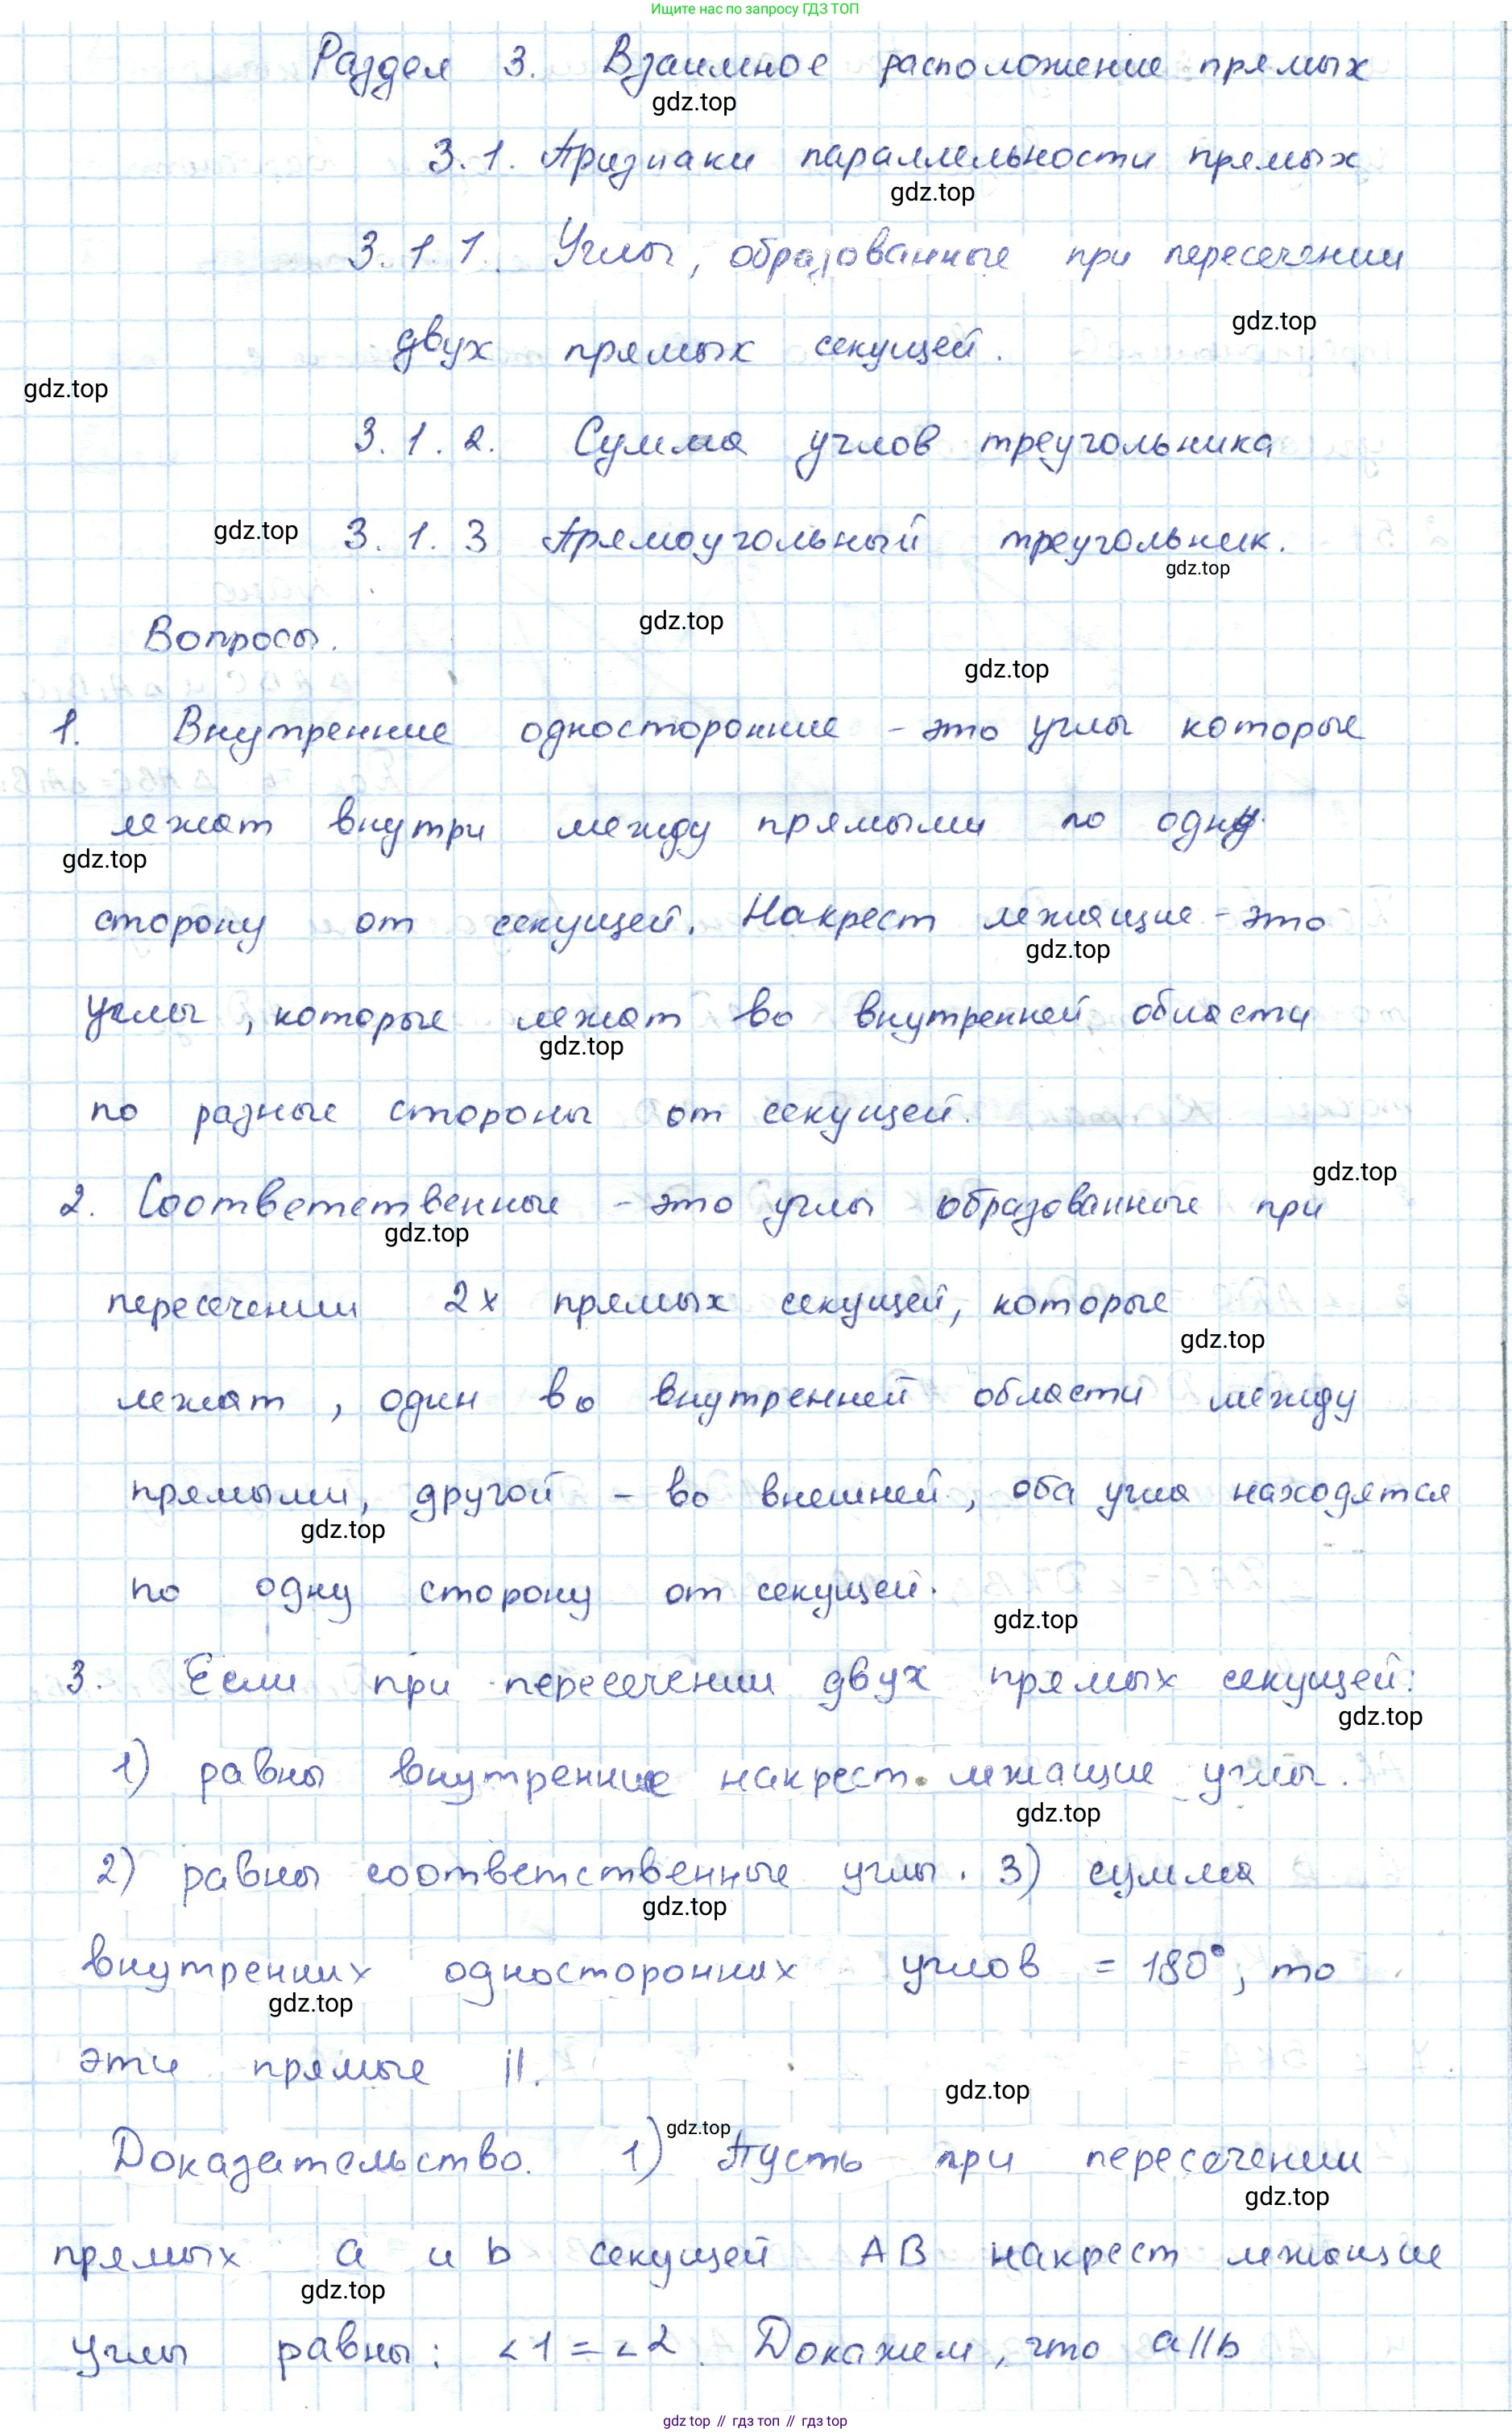 Ищите нас по запросу ГДЗ ТОП
Раздел 3. Взаимное расположение прямых
gdz.top
3.1. Признаки параллельности прямых
gdz.top
3.1.1. Углы, образованные при пересечении
gdz.top
двух прямых секущей.
gdz.top
3.1.2. Сумма углов треугольника
gdz.top
3.1.3 Прямоугольный треугольник.
gdz.top
gdz.top
Вопросы.
gdz.top
1. Внутренние односторонние - это углы которые
лежат внутри между прямыми по одну
gdz.top
сторону от секущей. Накрест лежащие - это
gdz.top
углы, которые лежат во внутренней области
gdz.top
по разные стороны от секущей.
gdz.top
2. Соответственные - это углы образованные при
gdz.top
пересечении 2х прямых секущей, которые
gdz.top
лежат, один во внутренней области между
прямыми, другой - во внешней, оба угла находятся
gdz.top
по одну сторону от секущей.
gdz.top
3. Если при пересечении двух прямых секущей:
gdz.top
1) равны внутренние накрест лежащие углы.
gdz.top
2) равны соответственные углы. 3) сумма
gdz.top
внутренних односторонних углов = 180°, то
gdz.top
эти прямые ||.
gdz.top
gdz.top
Доказательство. 1) Пусть при пересечении
gdz.top
прямых a и b секущей AB накрест лежащие
gdz.top
углы равны: ∠1 = ∠2. Докажем, что a||b
gdz.top // гдз топ // гдз top